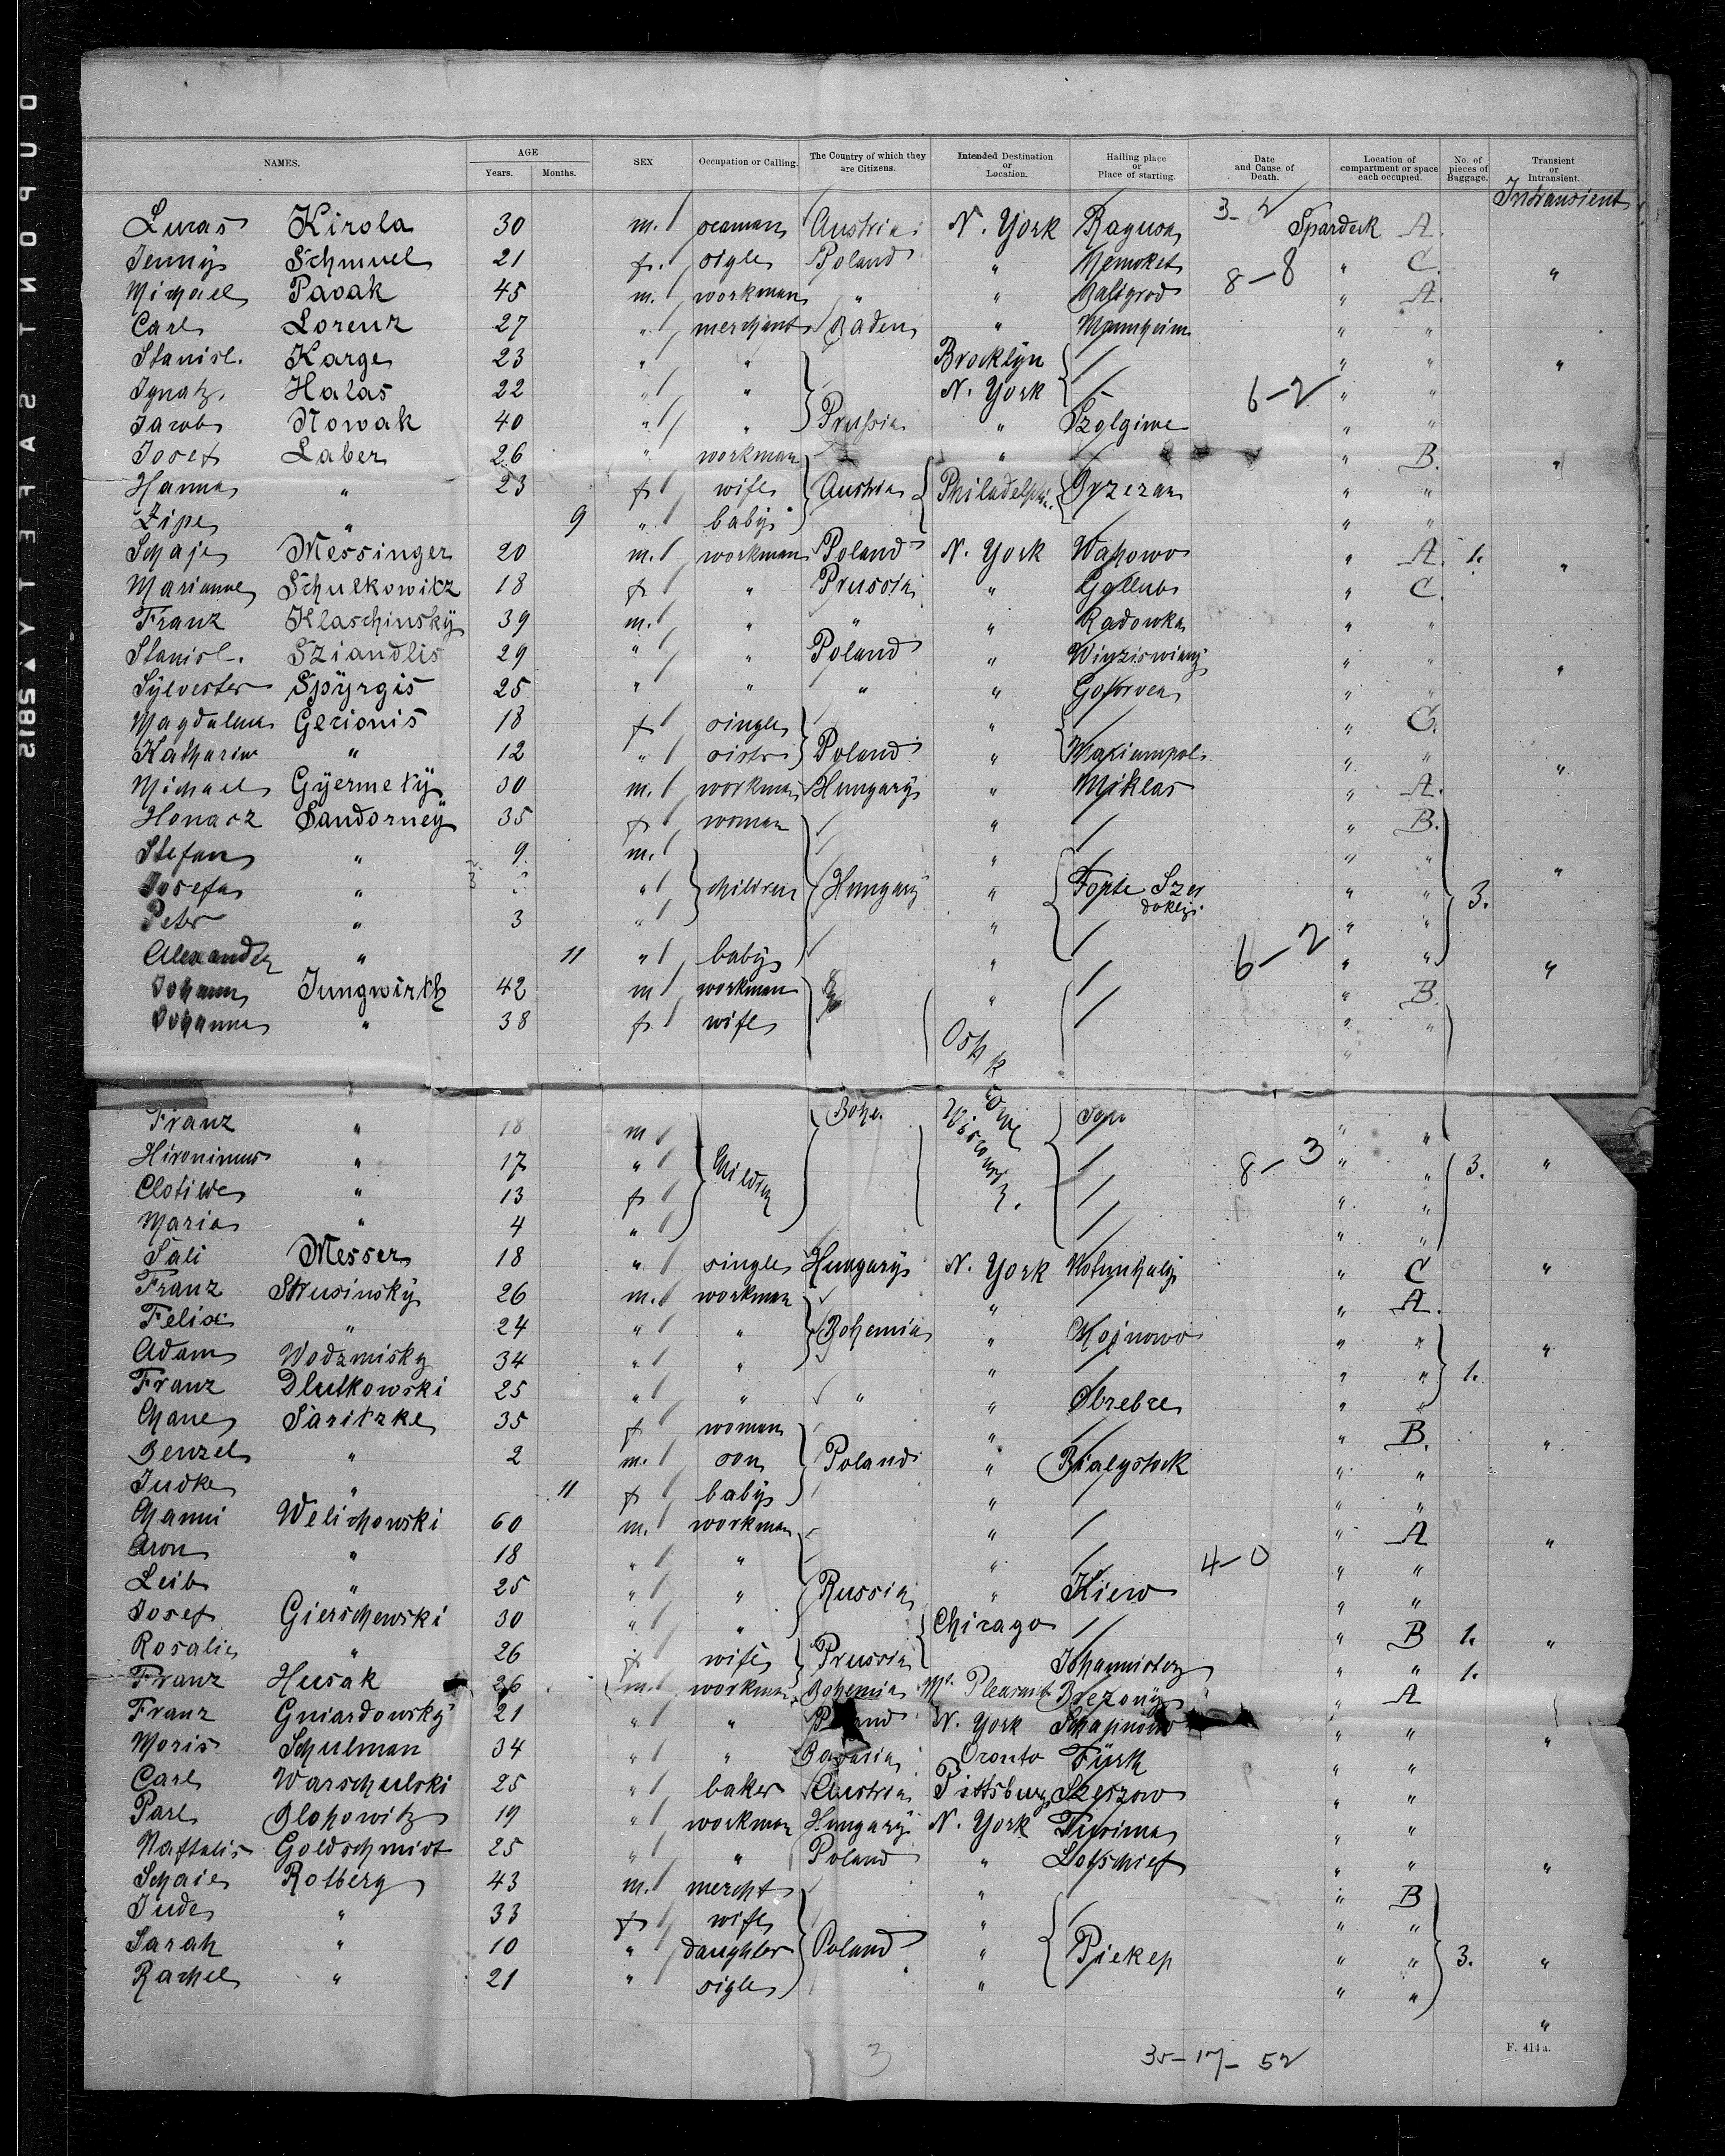 NAMES. AGE Years. Months. SEX Occupation or Calling. The Country of which they are Citizens. Intended Destination or Location. Hailing place or Place of starting. Date and Cause of Death. Location of compartment or space each occupied. No. of pieces of Baggage. Transient or Intransient.
Intransient
Lucas Kirola 30 m. seaman Austria N. York Ragusa 3-2 Spardeck A.
Jenny Schmuel 21 f. sigle Poland " 8-8 " C. "
Michael Pavak 45 m. workman " " Baligrod " A.
Carl Lorenz 27 " merchant Baden " Mannheim " "
Stanisl. Karge 23 " " Brocklyn " " "
Ignatz Halas 22 " " N. York 6-2 " "
Jacob Nowak 40 " " Prussia " " "
Josef Laber 26 " workman " " B. "
Hanna " 23 f wife Austria Philadelphi. " "
Zipe " 9 " baby " "
Schaje Messinger 20 m. workman Poland N. York Wahowo " A. 1. "
Marianne Schulkowitz 18 f " Prussia " Gollub " C.
Franz Klaschinsky 39 m. " " " Radowka " "
Stanisl. Sziandlis 29 " " Poland " " " "
Sylvester Spyrgis 25 " " " " " "
Magdalena Gerionis 18 f single " " C.
Katharine " 12 " sistr Poland " Mariampol " " "
Michael Gyermeky 30 m. workman Hungary " Miklas " A.
Honacz Sandorney 35 f woman " " B.
Stefan " 9 m. " " "
Josefa " " children Hungary " Fopte Szer dokly. " " 3. "
Peter " 3 " " " "
Alexander " 11 " baby " 6-2 " " "
Johann Jungwirth 42 m workman " " B.
Johanna " 38 f. wife " "
Oshkosh Wisconsin.
Franz " 18 m Bohe. " "
Hironimus " 17 " Childr 8-3 " " 3. "
Clotilde " 13 f " "
Maria " 4 " " "
Sali Messer 18 " single Hungary N. York " C "
Franz Strusinsky 26 m. workman " " A.
Felix " 24 " " Bohemia " Chojnowo " " "
Adam Wodzmisky 34 " " " " " 1.
Franz Dlutkowski 25 " " " " Obrebre " "
Chane Saritzke 35 f woman " " B. "
Benzel " 2 m. son Poland " Bialystock " "
Judke " 11 f baby " " "
Channi Welichowski 60 m. workman " " A "
Aron " 18 " " " 4-0 " "
Leib " 25 " " Russia " Kiew " "
Josef Gierschewski 30 " " Chicago " B 1. "
Rosalie " 26 f wife Prussia " " 1.
Franz Husak 26 m. workman Bohemia Mt. Pleasant Brezony " A
Franz Gniardowsky 21 " " Poland N. York " " "
Moris Schulman 34 " " Bavaria Oronto Fürth " "
Carl Warschulski 25 " baker Austria Pittsburg Szeszow " "
Parl Blohowitz 19 " workman Hungary N. York " "
Naftalis Goldschmidt 25 " " Poland " Lotschief " " "
Schaie Rotberg 43 m. mercht " " B
Jude " 33 f wife " " "
Sarah " 10 " daughter Poland " Piekep " " 3. "
Rachel " 21 " sigle " " "
"
3 35-17-52
F. 414 a.
DUPONT SAFETY ▲ S812